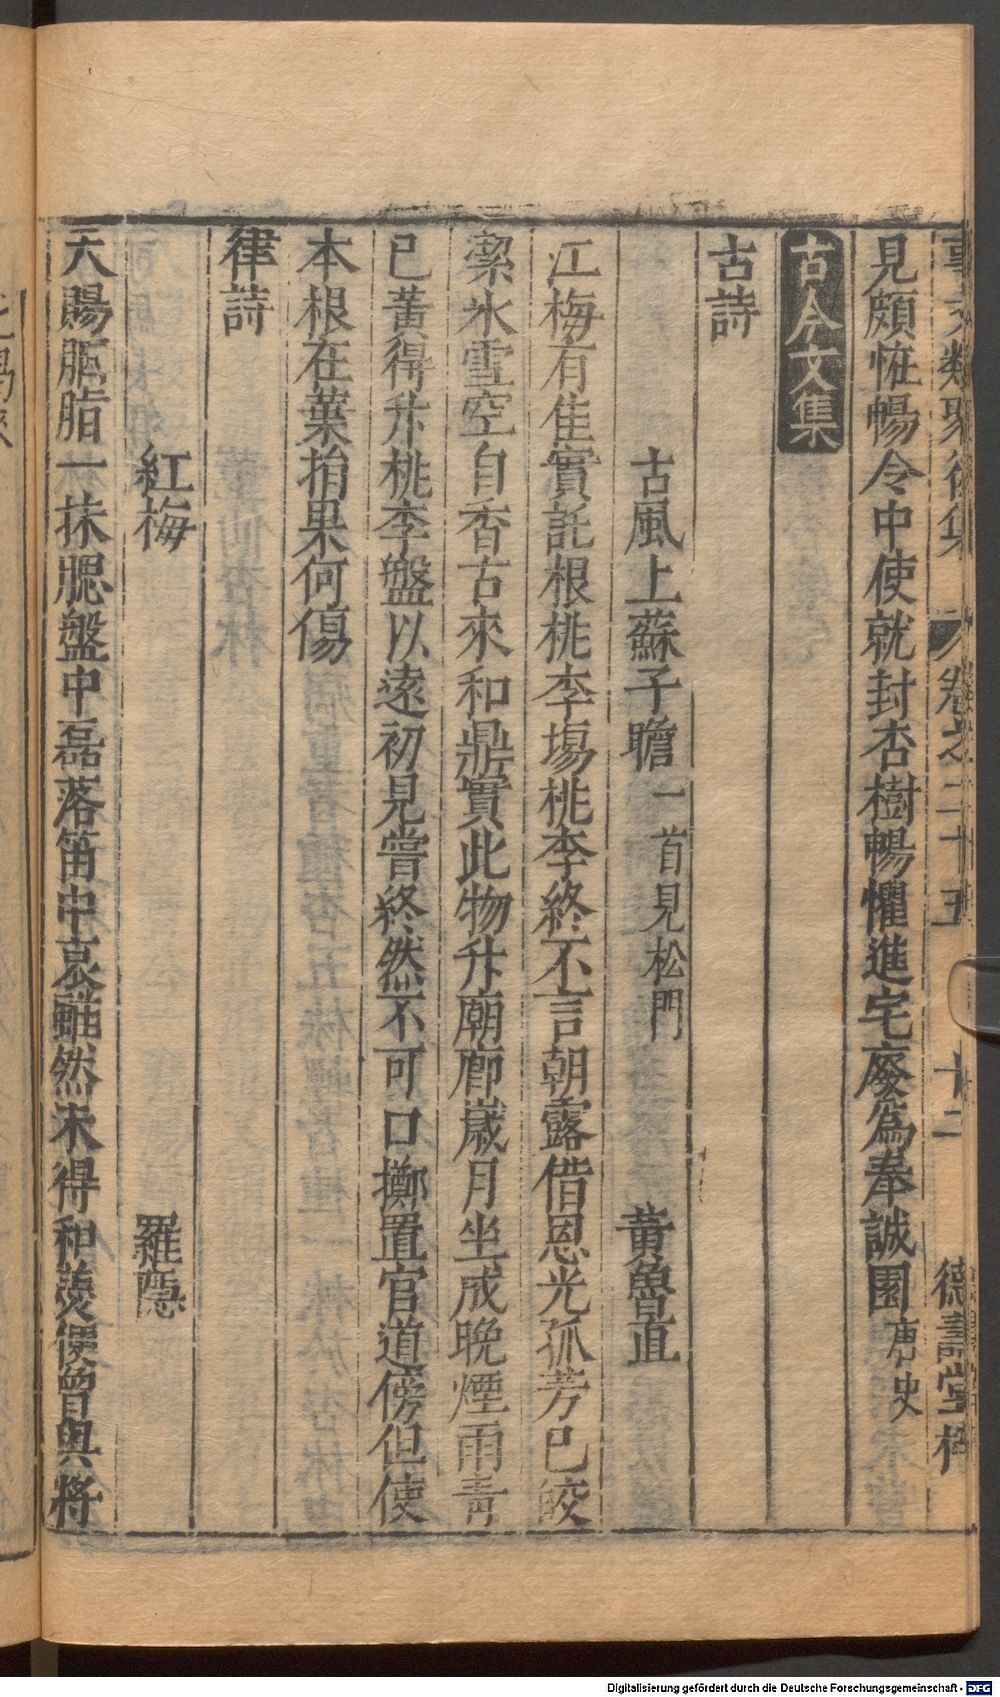 事文類聚後集 卷之二十五 十二 德壽堂梓
見頗恠暢令中使就封杏樹暢懼進宅廢為奉誠園唐史
古今文集
古詩
古風上蘇子瞻一首見松門 黃魯直
江梅有佳實託根桃李場桃李終不言朝露借恩光孤芳已皎
潔氷雪空自香古來和鼎實此物升廟廊歲月坐成晚煙雨青
已黃得升桃李盤以遠初見嘗終然不可口擲置官道傍但使
本根在葉捐果何傷
律詩
紅梅 羅隱
天賜胭脂一抹腮盤中磊落笛中哀雖然未得和羮便曾與將
Digitalisierung gefördert durch die Deutsche Forschungsgemeinschaft - DFG